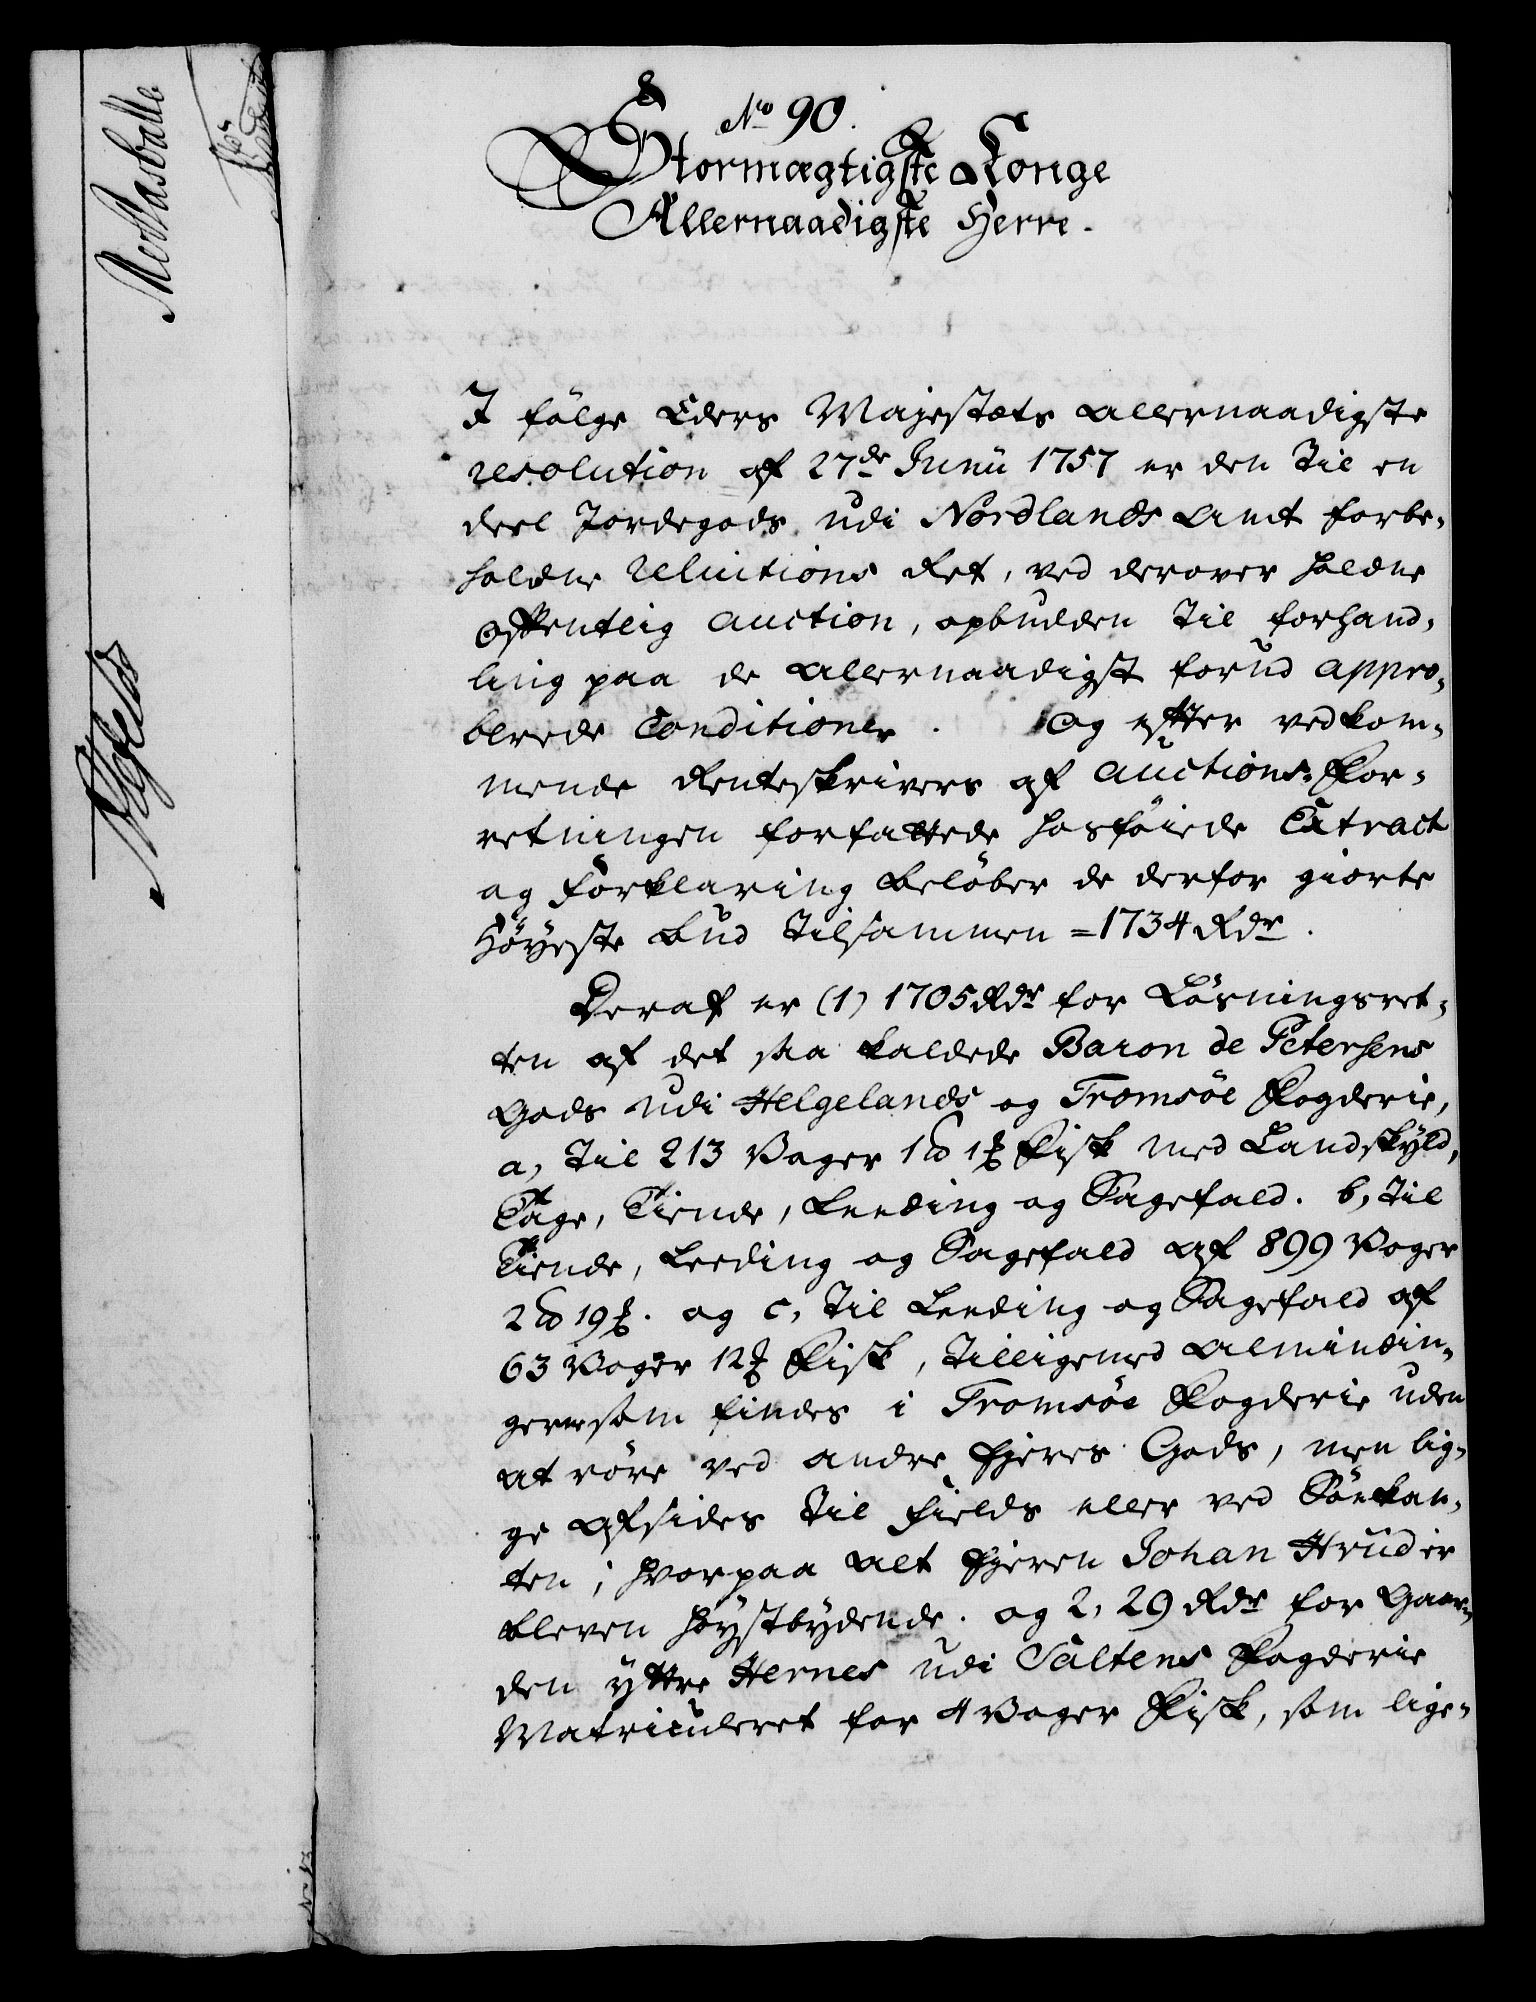 No 90.
Stormægtigste Konge
Allernaadigste Herre.
I følge Eders Majestæts allernaadigste
resolution af 27de Junii 1757 er den til en
deel Jordegods udi Nordlands Amt forbe-
holdne reluitions Ret, ved derover holdne
offentlig auction, opbudden til forhand-
ling paa de allernaadigst forud appro-
berede Conditioner. Og efter vedkom-
mende Renteskrivers af auctions-For-
retningen forfattede hosføiede Extract
og Forklaring beløber de derfor giorte
Høyeste bud tilsammen = 1734 Rdr.
Deraf er (1) 1705 Rdr for Løsningsret-
ten af det saa kaldede Baron de Petersens
Gods udi Helgelands og Tromsöe Fogderie,
a, til 213 Voger 1 1 Fisk med Landskyld,
Tage, Tiende, Leeding og Sagefald. b, til
Tiende, Leeding og Sagefald af 899 Voger
2 19. og c, til Leeding og Sagefald af
63 Voger 12 Fisk, tilligemed Alminдin-
ger som findes i Tromsöe Fogderie uden
at røre ved andre Ejeres Gods, men lig-
ge afsides til Fields eller ved Søekan-
ten; hvorpaa alt Ejeren Johan Hrüd er
bleven høystbydende. og 2, 29 Rdr for Gaar-
den yttre Hernes udi Saltens Fogderie
Matriculeret for 4 Voger Fisk, som lige-